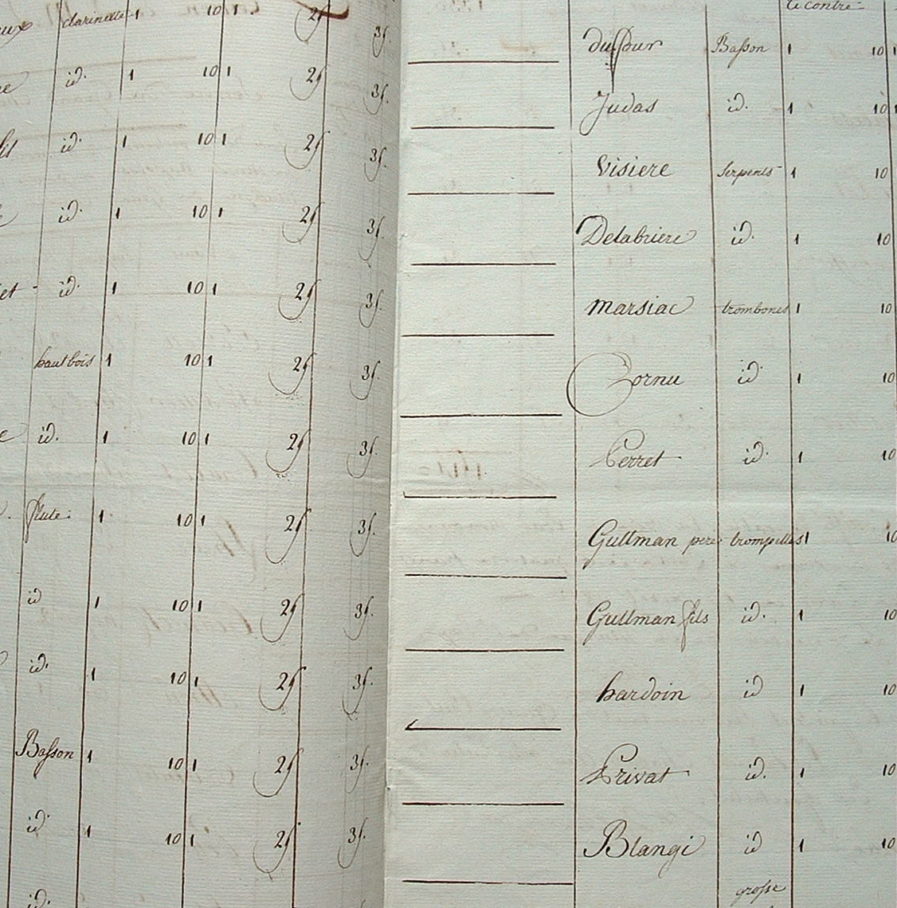 clarinette 1 10 1 2f 3f.
id. 1 10 1 2f 3f.
id. 1 10 1 2f 3f.
id. 1 10 1 2f 3f.
id. 1 10 1 2f 3f.
hautbois 1 10 1 2f 3f.
id. 1 10 1 2f 3f.
flute. 1 10 1 2f 3f.
id 1 10 1 2f 3f.
id. 1 10 1 2f 3f.
Basson 1 10 1 2f 3f.
id 1 10 1 2f 3f.
id.
Ci contre
dufour Basson 1 10 1
Judas id. 1 10 1
Visiere Serpents 1 10
Delabriere id. 1 10
Marsiac trombones 1 10
Cornu id. 1 10
Perret id. 1 10
Guttman pere trompettes 1 10
Guttman fils id. 1 10
hardoin id 1 10
Privat id. 1 10
Blangi id 1 10
grosse